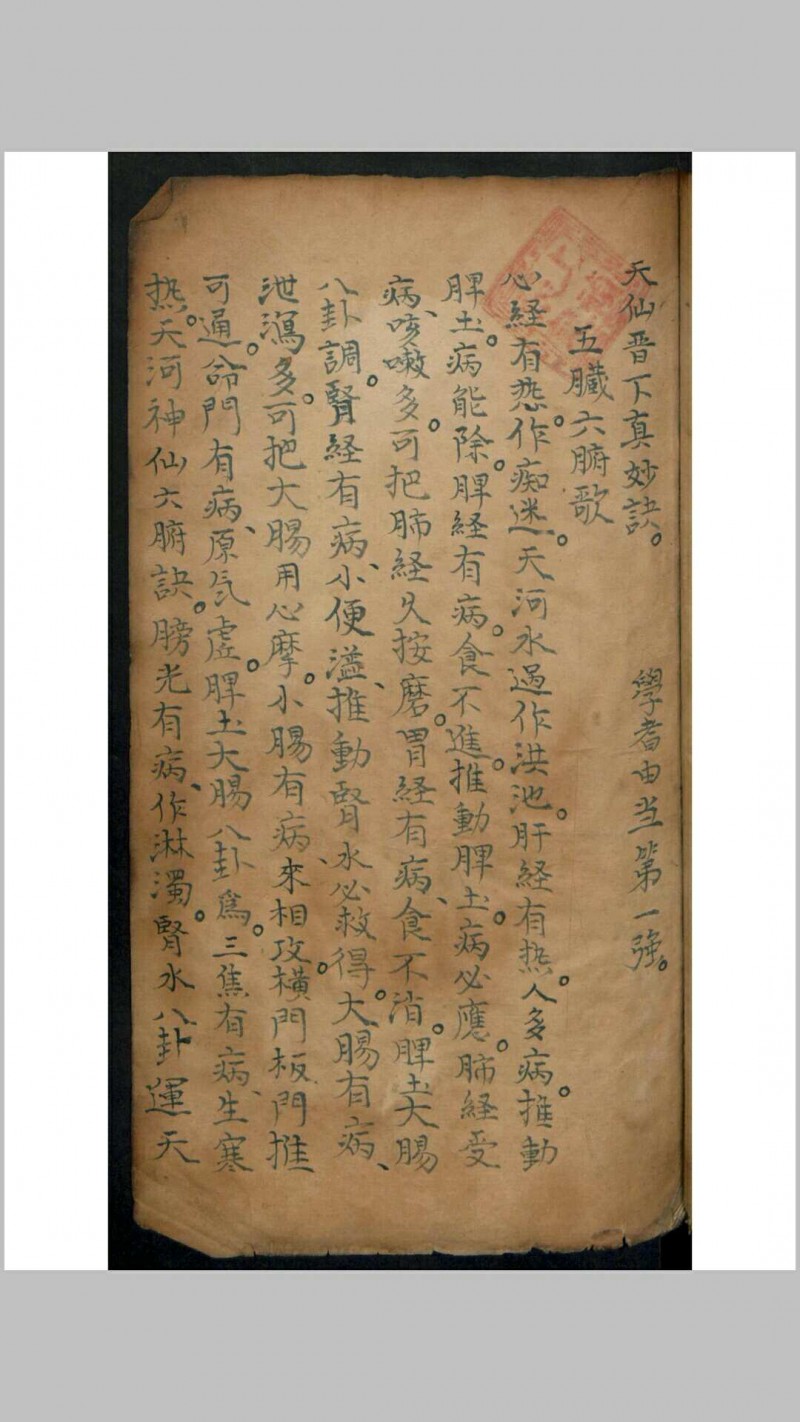 天仙晋下真妙訣。 學者由当第一強。
五臓六腑歌
心経有热。作痴迷。天河水過作洪池。肝経有热。人多病。推動
脾土。病能除。脾経有病。食不進。推動脾土。病必應。肺経受
病、咳嗽多。可把肺経久按磨。胃経有病、食不消。脾土大腸
八卦調。腎経有病、小便澁、推動腎水必救得。大腸有病、
泄瀉多。可把大腸用心摩。小腸有病、來相攻。橫門板門推
可通。命門有病、原気虚。脾土大腸八卦爲。三焦有病、生寒
热。天河神仙六腑訣。膀光有病、作淋濁。腎水八卦運天